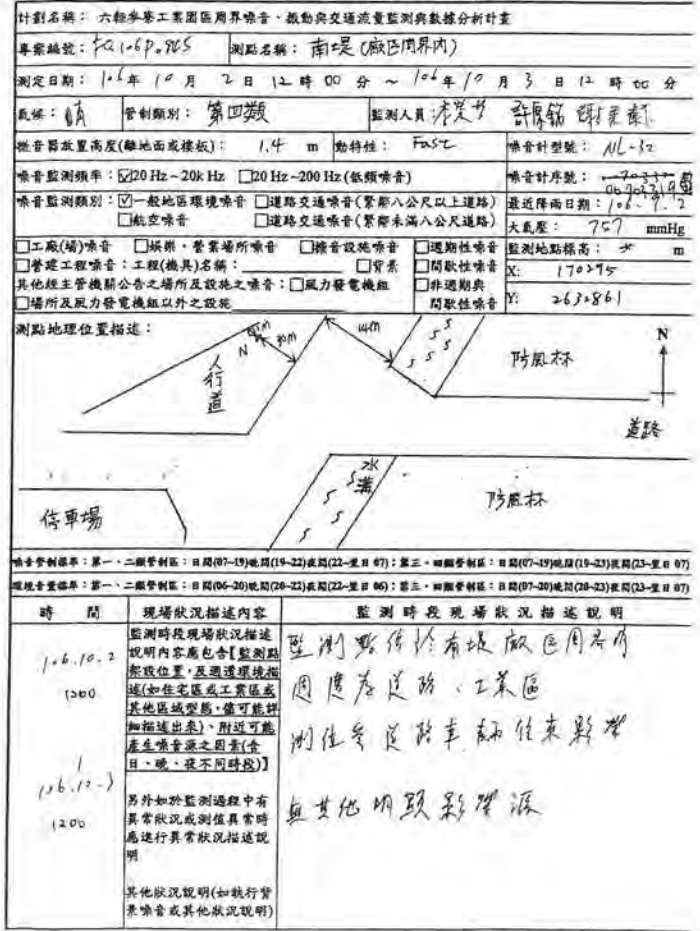 計劃名稱： 六輕麥寮工業園區周界噪音、振動與交通流量監測與數據分析計畫
專案編號： 測點名稱： 南堤(廠區周界內)
測定日期： 106 年 10 月 2 日 12 時 00 分 ～ 106 年 10 月 3 日 12 時 00 分
氣候： 晴 管制類別： 第四類 監測人員
微音器放置高度(離地面或樓板)： 1.4 m 動特性： Fast 噪音計型號： NL-32
噪音監測頻率：☑20 Hz～20k Hz □20 Hz～200 Hz(低頻噪音) 噪音計序號：
噪音監測類別：☑一般地區環境噪音 □道路交通噪音(緊鄰八公尺以上道路) 最近降雨日期：106.9.2
□航空噪音 □道路交通噪音(緊鄰未滿八公尺道路) 大氣壓： 757 mmHg
□工廠(場)噪音 □娛樂、營業場所噪音 □擴音設施噪音 □週期性噪音 監測地點標高： m
□營建工程噪音：工程(機具)名稱： □背景 □間歇性噪音 X: 170295
其他經主管機關公告之場所及設施之噪音：□風力發電機組 □非週期與
□場所及風力發電機組以外之設施 間歇性噪音 Y: 2632861
測點地理位置描述：
N 30m 14m
人行道
防風林
N
道路
水溝
停車場
防風林
噪音管制標準：第一、二類管制區：日間(07~19)晚間(19~22)夜間(22~翌日 07)；第三、四類管制區：日間(07~19)晚間(19~23)夜間(23~翌日 07)
環境音量標準：第一、二類管制區：日間(06~20)晚間(20~22)夜間(22~翌日 06)；第三、四類管制區：日間(07~20)晚間(20~23)夜間(23~翌日 07)
時 間 現場狀況描述內容 監測時段現場狀況描述說明
106.10.2
1200
106.10.3
1200
監測時段現場狀況描述
說明內容應包含【監測點
架設位置，及週遭環境描
述(如住宅區或工業區或
其他區域型態，儘可能詳
細描述出來)、附近可能
產生噪音源之因素(含
日、晚、夜不同時段)】
另外如於監測過程中有
異常狀況或測值異常時
應進行異常狀況描述說
明
其他狀況說明(如執行背
景噪音或其他狀況說明)
監測點位於南堤廠區周界內
周邊為道路、工業區
測值受道路車輛往來影響
無其他明顯影響源